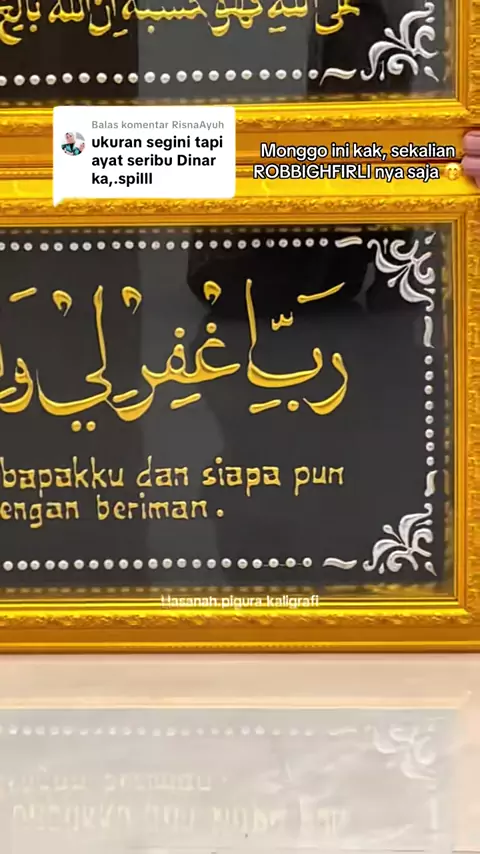 عَلَى اللّٰهِ فَهُوَ حَسْبُهُ اِنَّ اللّٰهَ بَالِغُ
Balas komentar RisnaAyuh
ukuran segini tapi
ayat seribu Dinar
ka,.spilll
Monggo ini kak, sekalian
ROBBIGHFIRLI nya saja 🤭
رَبِّ اغْفِرْ لِيْ
bapakku dan siapa pun
engan beriman.
Hasanah.pigura.kaligrafi